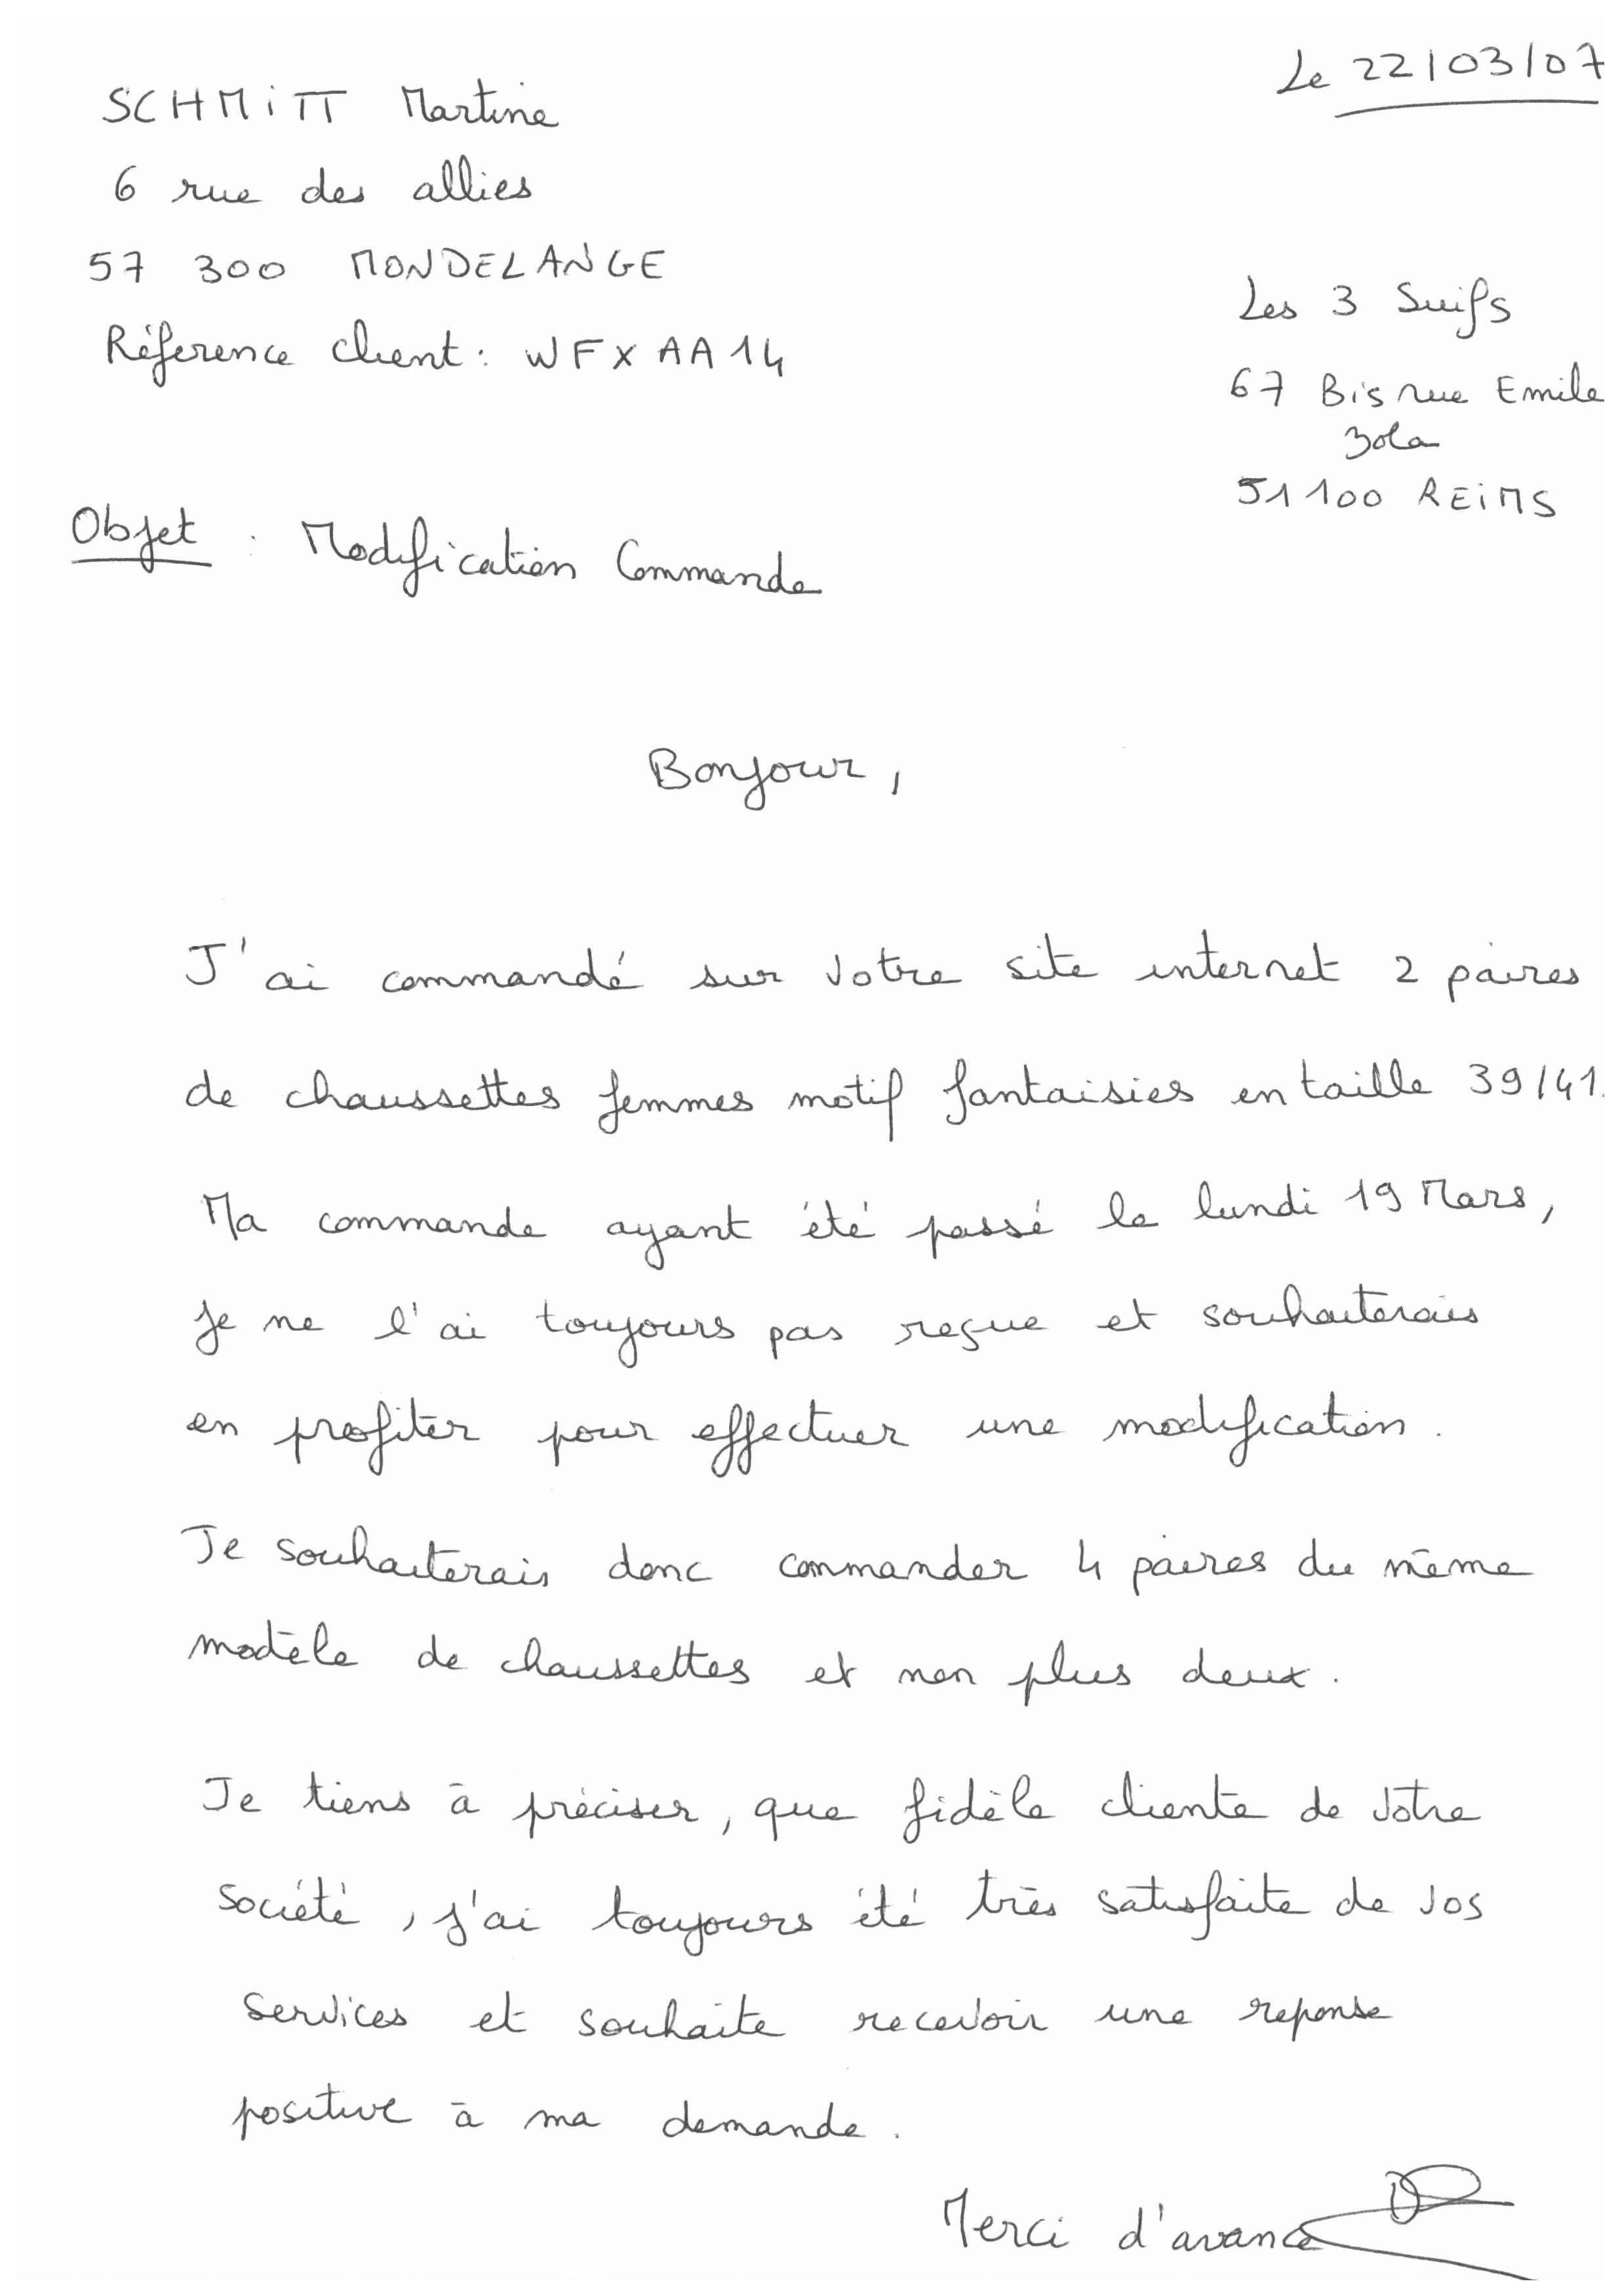 Le 22/03/07
SCHMiTT Martine
6 rue des allies
57 300 MONDELANGE
Réference client : WFXAA14
Les 3 Suifs
67 Bis rue Emile
Zola
51100 REiMS
Objet : Modification Commande
Bonjour,
J'ai commandé sur votre site internet 2 paires
de chaussettes femmes motif fantaisies en taille 39/41.
Ma commande ayant été passé le lundi 19 Mars,
je ne l'ai toujours pas reçue et souhaiterais
en profiter pour effectuer une modification.
Je souhaiterais donc commander 4 paires du même
modèle de chaussettes et non plus deux.
Je tiens à préciser, que fidèle cliente de votre
société, j'ai toujours été très satisfaite de vos
services et souhaite recevoir une reponse
positive à ma demande.
Merci d'avance